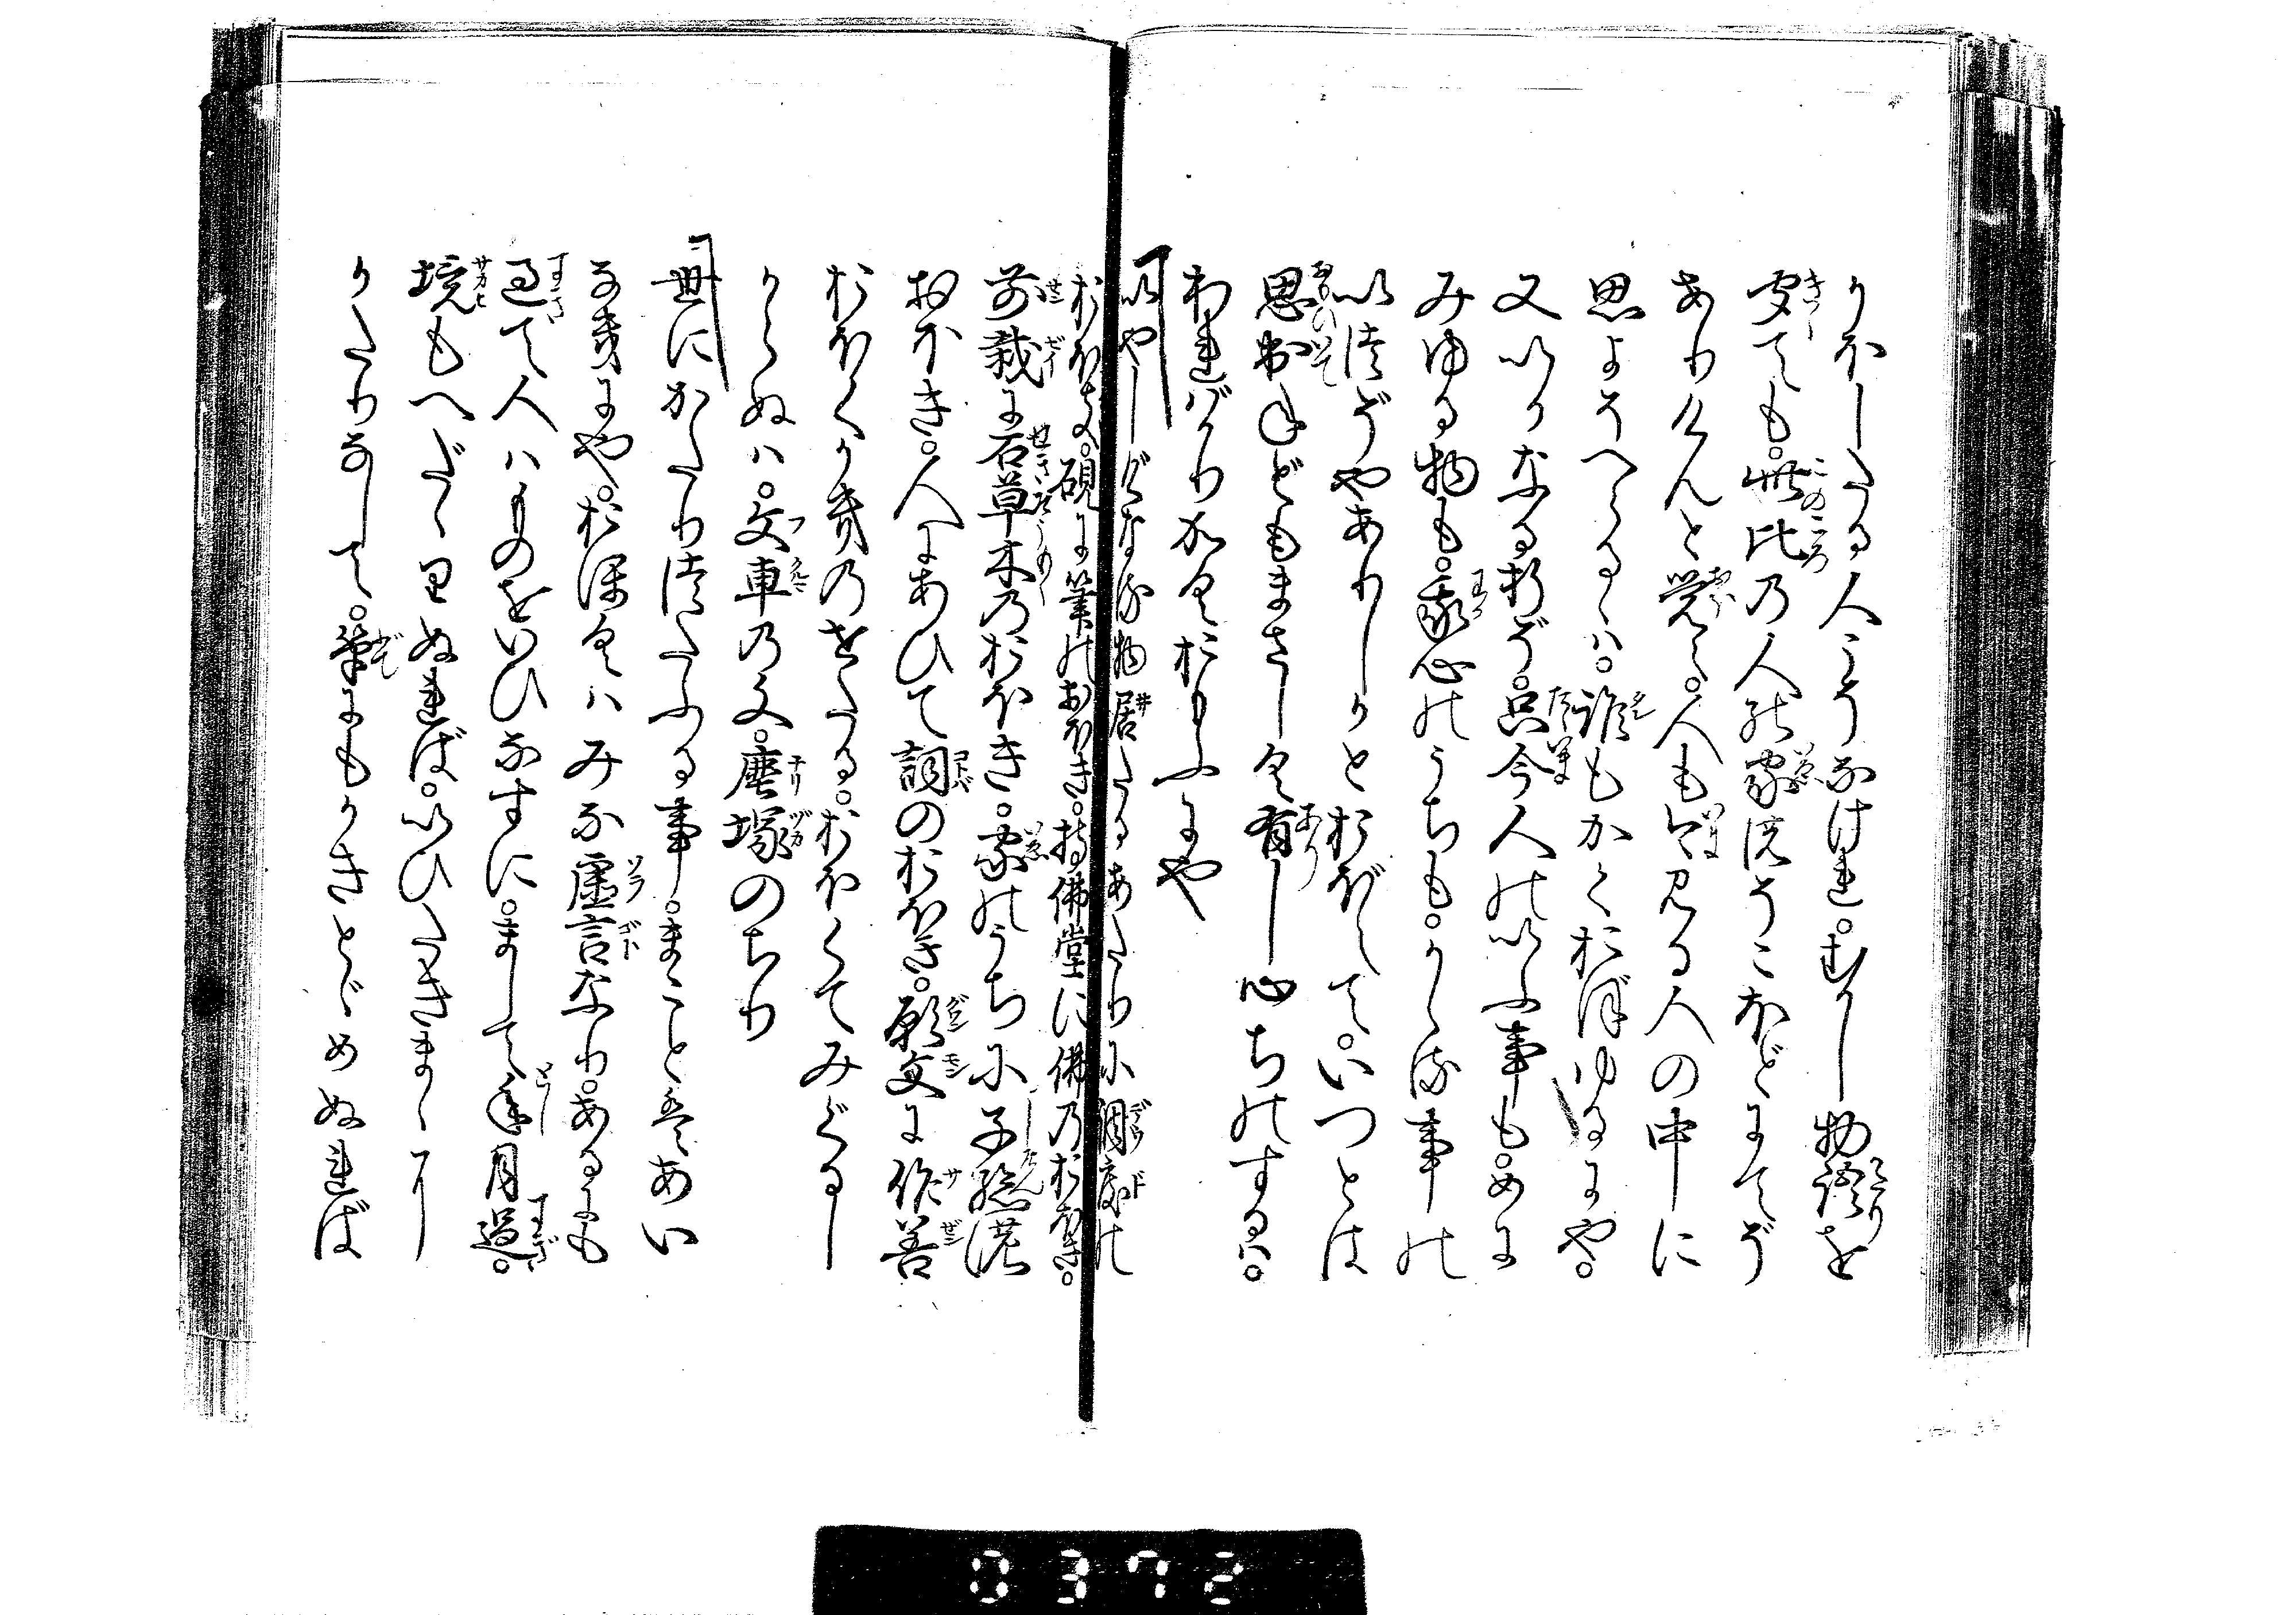 りほしたる人こそなけれ。むかし物語を
聞ても。此比の人の家のそこほどにてぞ
ありけんと覚え。人も今見る人の中に
思よそへらるゝは。誰もかくおぼゆるにや。
又いかなる折ぞ。只今人のいふ事も。めに
みゆる物も。我心のうちも。かゝる事の
いつぞやありしかとおぼえて。いつとは
思出ねどもまさしく有し心ちのするは。
わればかりかくおもふにや
いやしげなる物居たるあたりに調度の
おほき。硯に筆のおほき。持佛堂に佛のおほき。
前栽に石草木のおほき。家のうちに子孫の
おほき。人にあひて詞のおほき。願文に作善
おほくかきのせたる。おほくてみぐるし
からぬは。文車の文。塵塚のちり
世にかたりつたふる事。まことはあい
なきにや。おほくはみな虚言なり。あるにも
過て人はものをいひなすに。まして年月過。
境もへだゝりぬれば。いひたきまゝに
かたりなして。筆にもかきとゞめぬれば
0372